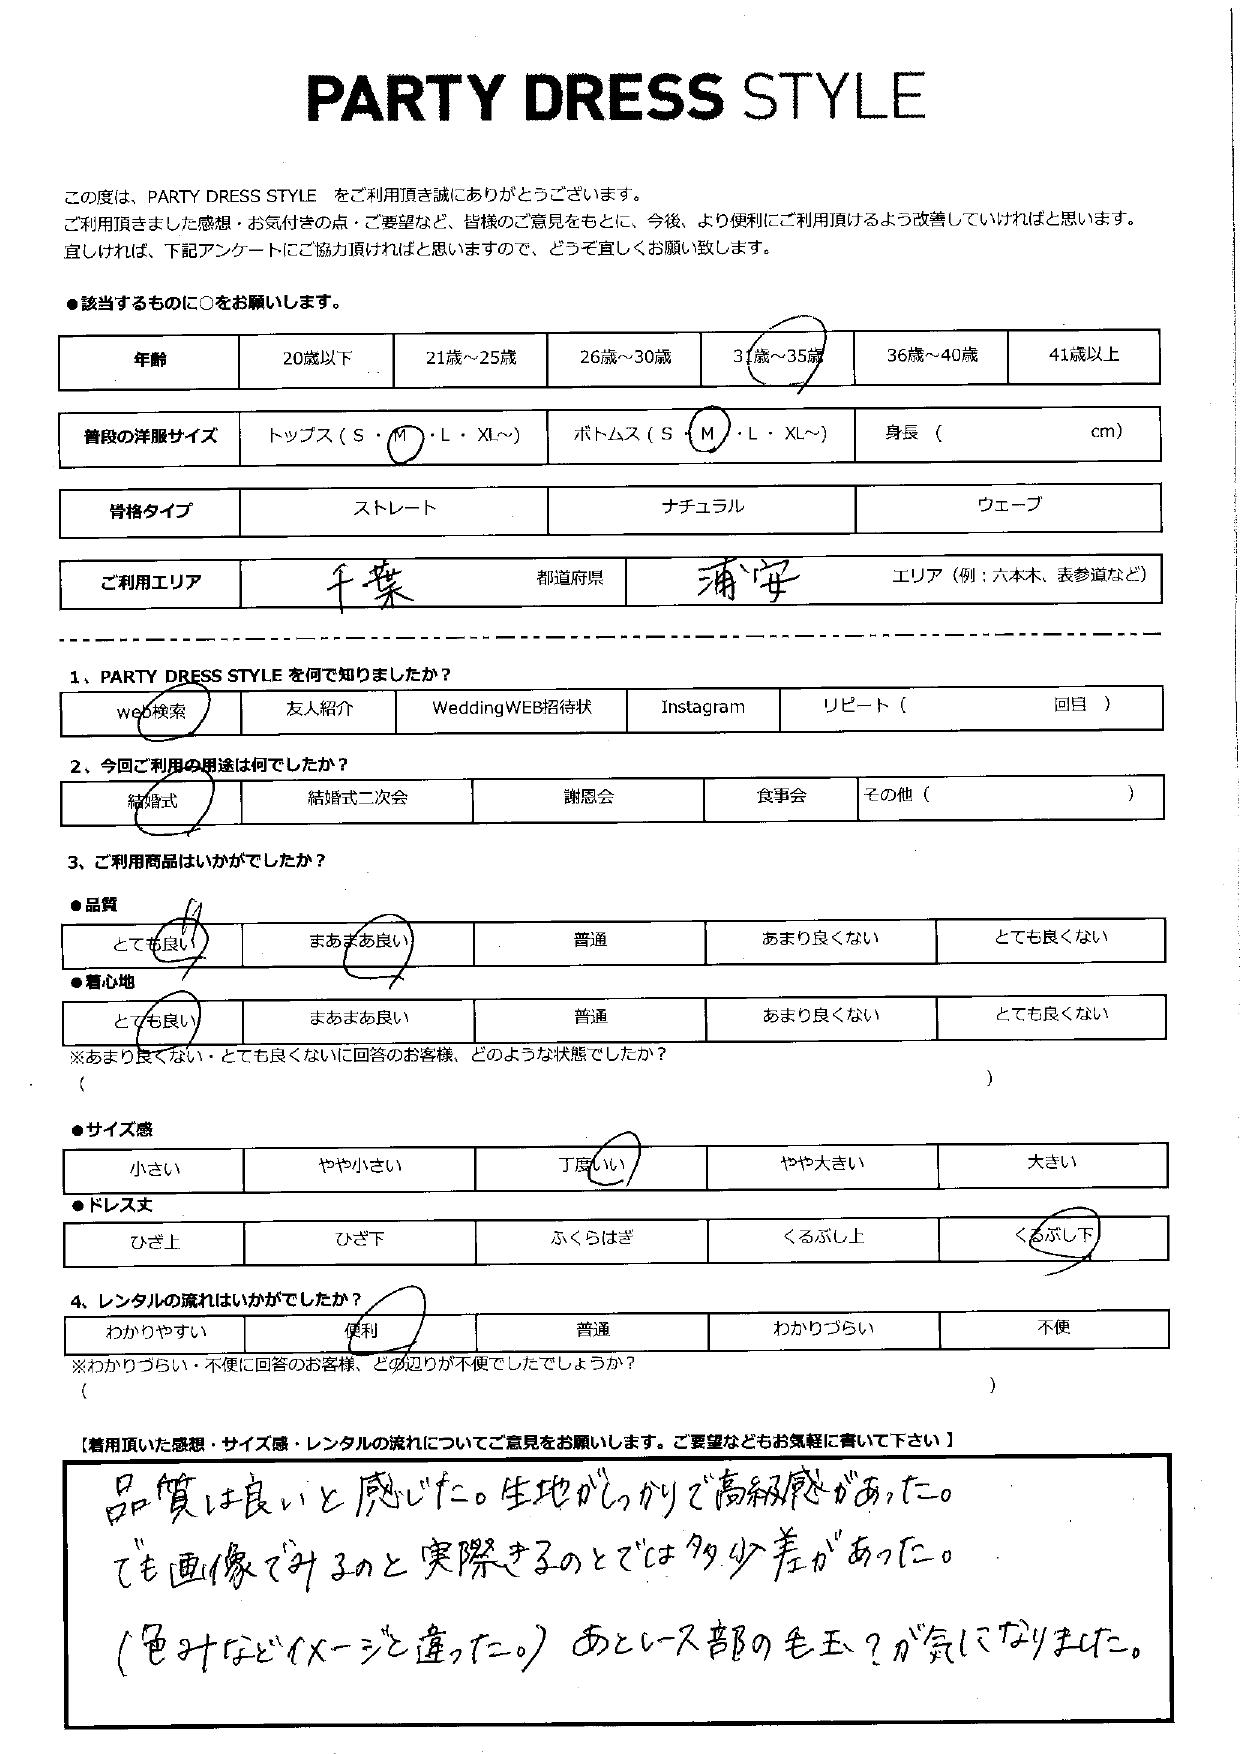 PARTY DRESS STYLE
この度は、PARTY DRESS STYLE をご利用頂き誠にありがとうございます。
ご利用頂きました感想・お気付きの点・ご要望など、皆様のご意見をもとに、今後、より便利にご利用頂けるよう改善していければと思います。
宜しければ、下記アンケートにご協力頂ければと思いますので、どうぞ宜しくお願い致します。
●該当するものに○をお願いします。
年齢 20歳以下 21歳～25歳 26歳～30歳 31歳～35歳 36歳～40歳 41歳以上
普段の洋服サイズ トップス ( S ・ M ・ L ・ XL～) ボトムス ( S ・ M ・ L ・ XL～) 身長 ( cm)
骨格タイプ ストレート ナチュラル ウェーブ
ご利用エリア 千葉 都道府県 浦安 エリア（例：六本木、表参道など）
1、PARTY DRESS STYLE を何で知りましたか？
web検索 友人紹介 WeddingWEB招待状 Instagram リピート ( 回目 )
2、今回ご利用の用途は何でしたか？
結婚式 結婚式二次会 謝恩会 食事会 その他 ( )
3、ご利用商品はいかがでしたか？
●品質
とても良い まあまあ良い 普通 あまり良くない とても良くない
●着心地
とても良い まあまあ良い 普通 あまり良くない とても良くない
※あまり良くない・とても良くないに回答のお客様、どのような状態でしたか？
( )
●サイズ感
小さい やや小さい 丁度いい やや大きい 大きい
●ドレス丈
ひざ上 ひざ下 ふくらはぎ くるぶし上 くるぶし下
4、レンタルの流れはいかがでしたか？
わかりやすい 便利 普通 わかりづらい 不便
※わかりづらい・不便に回答のお客様、どの辺りが不便でしたでしょうか？
( )
【着用頂いた感想・サイズ感・レンタルの流れについてご意見をお願いします。ご要望などもお気軽に書いて下さい】
品質は良いと感じた。生地がしっかりで高級感があった。
でも画像でみるのと実際きるのとでは多少差があった。
（色みなどイメージと違った。）あとレース部の毛玉？が気になりました。